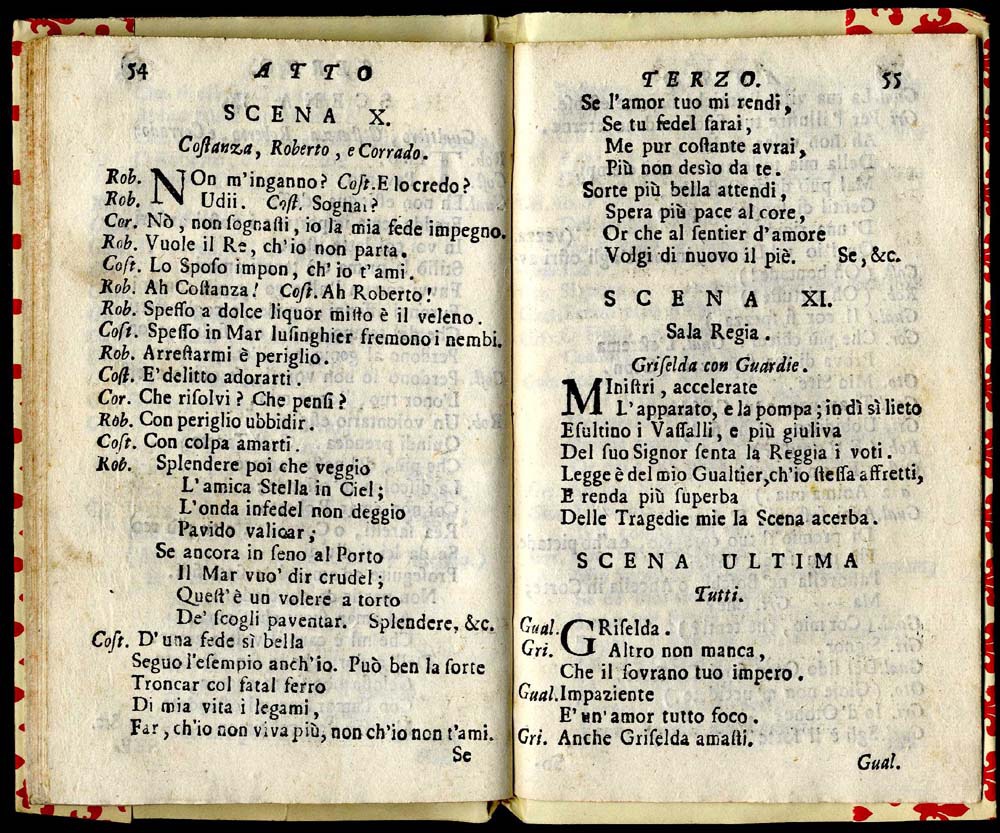 54 ATTO
SCENA X.
Coſtanza, Roberto, e Corrado.
Rob. NOn m'inganno? Coſt. E lo credo?
Rob. Udii. Coſt. Sognai?
Cor. Nò, non ſognaſti, io la mia fede impegno.
Rob. Vuole il Re, ch'io non parta.
Coſt. Lo Spoſo impon, ch'io t'ami.
Rob. Ah Coſtanza! Coſt. Ah Roberto!
Rob. Speſſo a dolce liquor miſto è il veleno.
Coſt. Speſſo in Mar luſinghier fremono i nembi.
Rob. Arreſtarmi è periglio.
Coſt. E' delitto adorarti.
Cor. Che riſolvi? Che penſi?
Rob. Con periglio ubbidir.
Coſt. Con colpa amarti.
Rob. Splendere poi che veggio
L'amica Stella in Ciel;
L'onda infedel non deggio
Pavido valicar;
Se ancora in ſeno al Porto
Il Mar vuo' dir crudel;
Queſt'è un volere a torto
De' ſcogli paventar. Splendere, &c.
Coſt. D'una fede sì bella
Seguo l'eſempio anch'io. Può ben la ſorte
Troncar col fatal ferro
Di mia vita i legami,
Far, ch'io non viva più, non ch'io non t'ami.
Se
TERZO. 55
Se l'amor tuo mi rendi,
Se tu fedel ſarai,
Me pur coſtante avrai,
Più non desìo da te.
Sorte più bella attendi,
Spera più pace al core,
Or che al ſentier d'amore
Volgi di nuovo il piè. Se, &c.
SCENA XI.
Sala Regia.
Griſelda con Guardie.
MIniſtri, accelerate
L'apparato, e la pompa; in dì sì lieto
Eſultino i Vaſſalli, e più giuliva
Del ſuo Signor ſenta la Reggia i voti.
Legge è del mio Gualtier, ch'io ſteſſa affretti,
E renda più ſuperba
Delle Tragedie mie la Scena acerba.
SCENA ULTIMA
Tutti.
Gual. GRiſelda.
Gri. Altro non manca,
Che il ſovrano tuo impero.
Gual. Impaziente
E' un' amor tutto foco.
Gri. Anche Griſelda amaſti.
Gual.